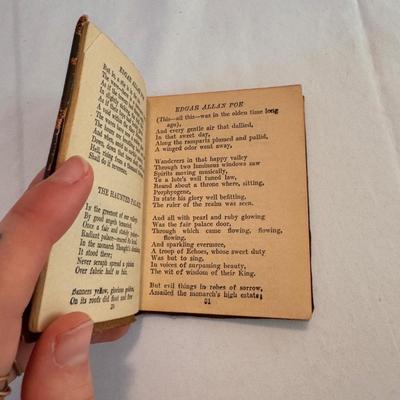 EDGAR ALLA
But lo, a stir is in the
As if the
As if
A void
The waves
The hours are
And when, amid
Down, down
Hell, rising from a
Shall do it reverence.
THE HAUNTED PALACE
In the greenest of our valleys
By good angels tenanted,
Once a fair and stately palace—
Radiant palace—reared its head.
In the monarch Thought's dominion
It stood there;
Never seraph spread a pinion
Over fabric half so fair.
Banners yellow, glorious, golden,
On its roof did float and flow
EDGAR ALLAN POE
(This—all this—was in the olden time long
ago),
And every gentle air that dallied,
In that sweet day,
Along the ramparts plumed and pallid,
A winged odor went away,
Wanderers in that happy valley
Through two luminous windows saw
Spirits moving musically,
To a lute's well tuned law,
Round about a throne where, sitting,
Porphyogene,
In state his glory well befitting,
The ruler of the realm was seen.
And all with pearl and ruby glowing
Was the fair palace door,
Through which came flowing, flowing,
flowing,
And sparkling evermore,
A troop of Echoes, whose sweet duty
Was but to sing,
In voices of surpassing beauty,
The wit of wisdom of their King.
But evil things in robes of sorrow,
Assailed the monarch's high estate;
51